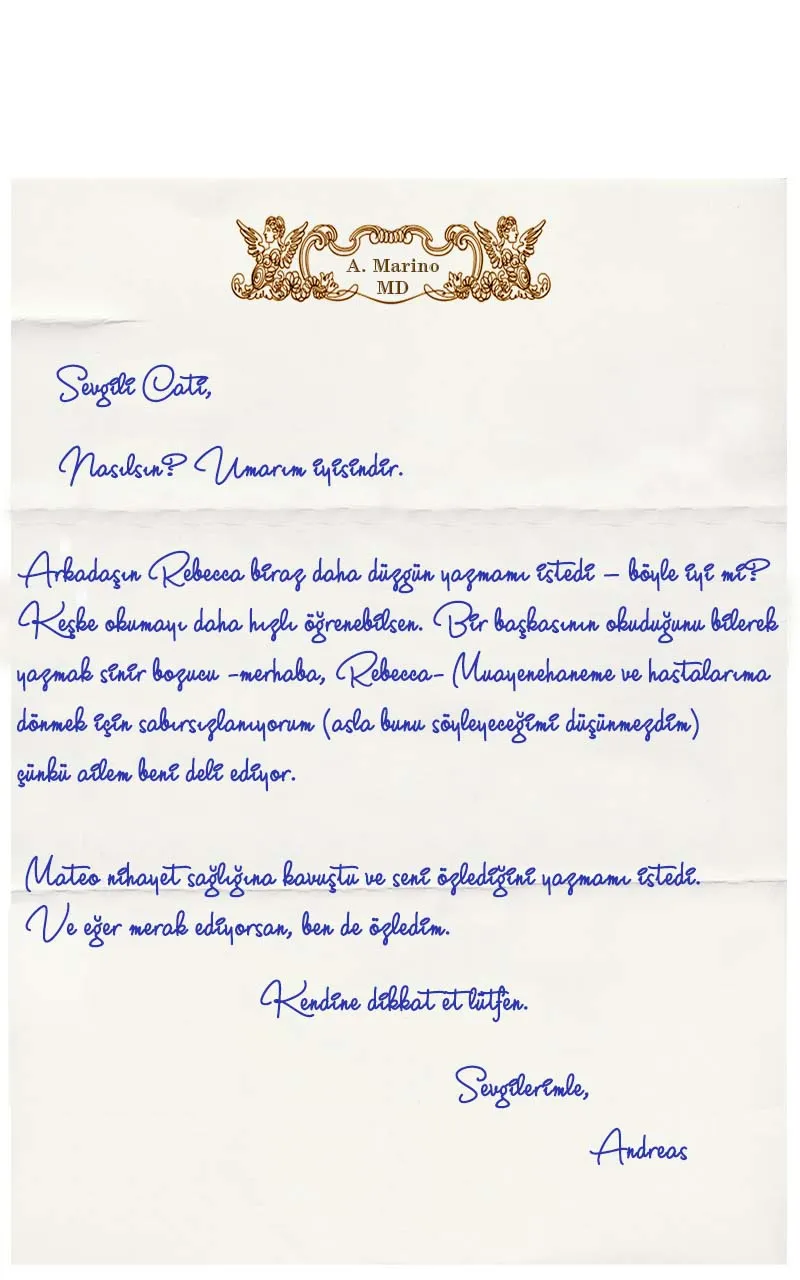 A. Marino
MD
Sevgili Cati,
Nasılsın? Umarım iyisindir.
Arkadaşın Rebecca biraz daha düzgün yazmamı istedi – böyle iyi mi?
Keşke okumayı daha hızlı öğrenebilsen. Bir başkasının okuduğunu bilerek
yazmak sinir bozucu -merhaba, Rebecca- Muayenehaneme ve hastalarıma
dönmek için sabırsızlanıyorum (asla bunu söyleyeceğimi düşünmezdim)
çünkü ailem beni deli ediyor.
Mateo nihayet sağlığına kavuştu ve seni özlediğini yazmamı istedi.
Ve eğer merak ediyorsan, ben de özledim.
Kendine dikkat et lütfen.
Sevgilerimle,
Andreas